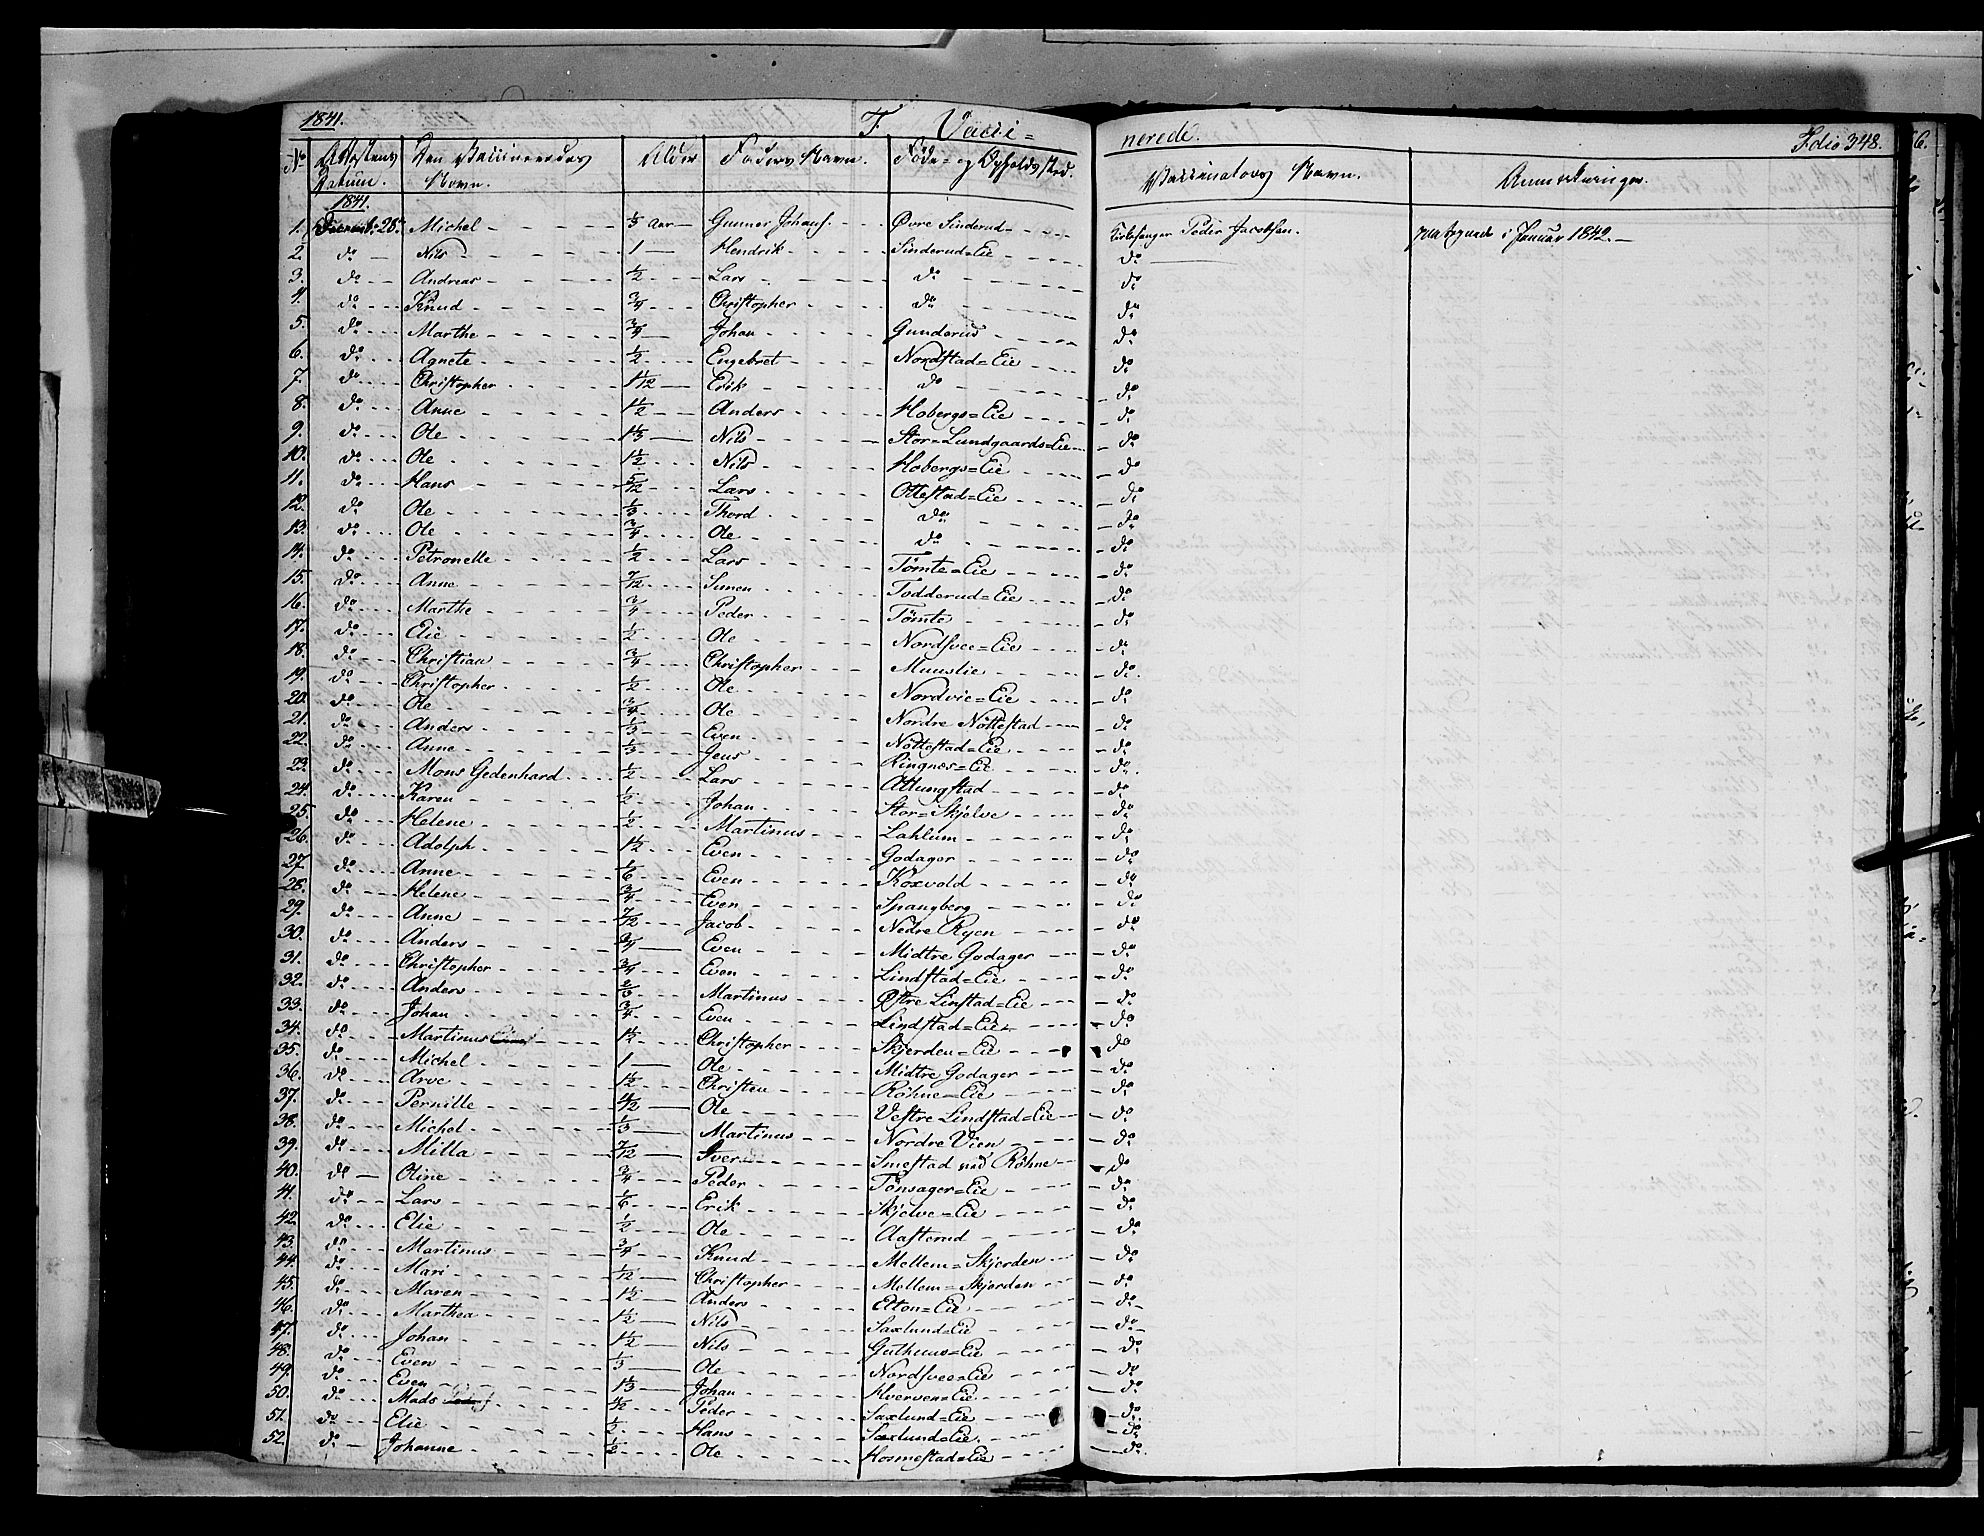 1841. F. Vacci= nerede. Folio 348.
No Attestens Datum. Den Vaccineredes Navn. Alder Faders Navn. Føde- og Opholdssted. Vaccinators Navn. Anmærkninger.
1841.
1. Decemb. 28. Michel 1/3 Aar Gunner Johans. Øvre Sinderud Kirkesanger Peder Jacobsen. modtagende i Januar 1842.
2. do Nils 1 Hendrik Sinderud=Eie do
3. do Andreas 1/2 Lars do do
4. do Knud 3/4 Christopher do do
5. do Marthe 3/4 Johan Gunderud do
6. do Agnete 1/2 Engebret Nordstad=Eie do
7. do Christopher 1 1/12 Erik do do
8. do Anne 1 1/2 Anders Hobergs=Eie do
9. do Ole 1 1/3 Nils Stor=Lundgaards=Eie do
10. do Ole 1 1/2 Nils Hobergs=Eie do
11. do Hans 5/12 Lars Ottestad=Eie do
12. do Ole 1/3 Thord do do
13. do Ole 3/4 Ole do do
14. do Petronelle 1/2 Lars Tømte=Eie do
15. do Anne 7/12 Simen Fodderud=Eie do
16. do Marthe 3/4 Peder Tømte do
17. do Elie 1/2 Ole Nordsvee=Eie do
18. do Christian 3/4 Christopher Muuslie do.
19. do Christopher 1/2 Ole Nordvie=Eie do
20. do Ole 3/4 Ole Nordre Nøttestad do
21. do Anders 1/3 Even Nøttestad=Eie do
22. do Anne 1/3 Jens Ringnes=Ei do.
23. do Mons Gedenhard 1/2 Lars Attungstad do
24. do Karen 1/2 Johan Stor=Skjelve do
25. do Helene 1/2 Martinus Lahlum do
26. do Adolph 1 1/2 Even Godager do
27. do Anne 1/6 Even Koxvold do
28. do Helene 3/4 Even Spangberg do
29. do Anne 7/12 Jacob Nedre Ryen do
30. do Anders 3/4 Even Midtre Godager do
31. do Christopher 3/4 Even Lindstad=Eie do
32. do Anders 2/3 Martinus Østre Linstad=Eie do
33. do Johan 3/4 Even Lindstad=Eie do
34. do Martinus 1 1/2 Christopher Skjerden=Eie do
35. do Michel 1 Ole Midtre Godager do
36. do Arve 1 1/2 Christen Røhne=Eie do
37. do Pernille 4/12 Ole Vestre Lindstad=Eie do
38. do Michel 1/3 Martinus Nordre Vien do
39. do Milla 7/12 Iver Smestad ved Røhne do
40. do Oline 3/4 Peder Tønsager=Eie do
41. do Lars 1/6 Erik Skjelve=Eie do
42. do Elie 1/2 Ole Aasterud do
43. do Martinus 3/4 Knud Mellem=Skjerden do
44. do Mari 1/12 Christopher Mellem=Skjerden do
45. do Maren 1 1/2 Anders Elton=Eie do
46. do Marthea 1 1/2 Nils Saxlund=Eie do
47. do Johan 1 1/2 Nils Guthuus=Eie do
48. do Even 1/3 Ole Nordsvee=Eie do
49. do Even 1 1/3 Johan Hverven=Eie do
50. do Mads Peder Saxlund=Eie do
51. do Elie 1/2 Hans Saxlund=Eie do
52. do Johanne 1/2 Ole Hosmestad=Eie do.